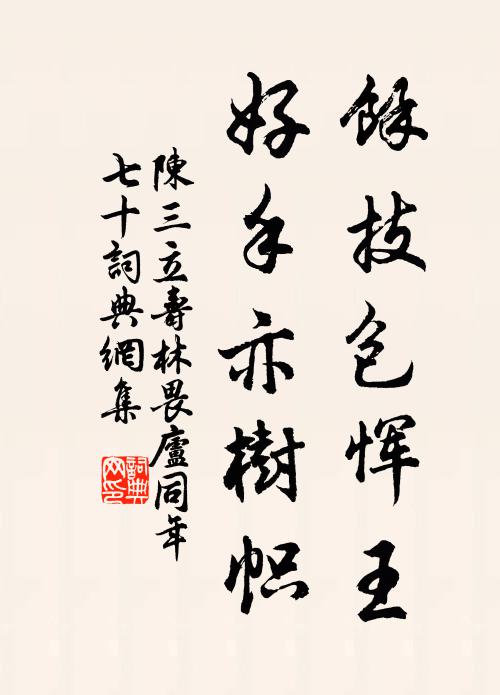 餘技包惲王
好手亦樹幟
陳三立壽林畏廬同年
七十詞典網集
詞典網印